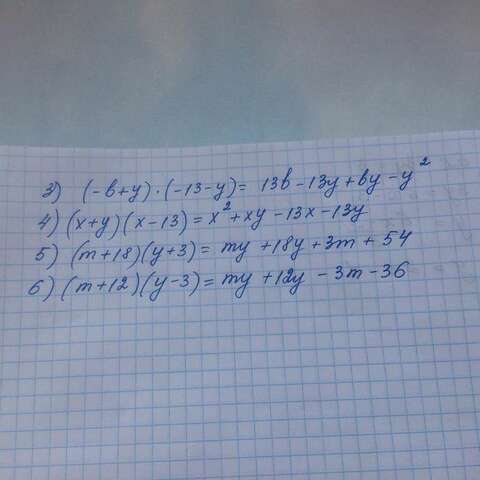 3) (-b+y)·(-13-y)= 13b-13y+by-y²
4) (x+y)(x-13)=x²+xy-13x-13y
5) (m+18)(y+3)= my+18y+3m+54
6) (m+12)(y-3)= my+12y-3m-36